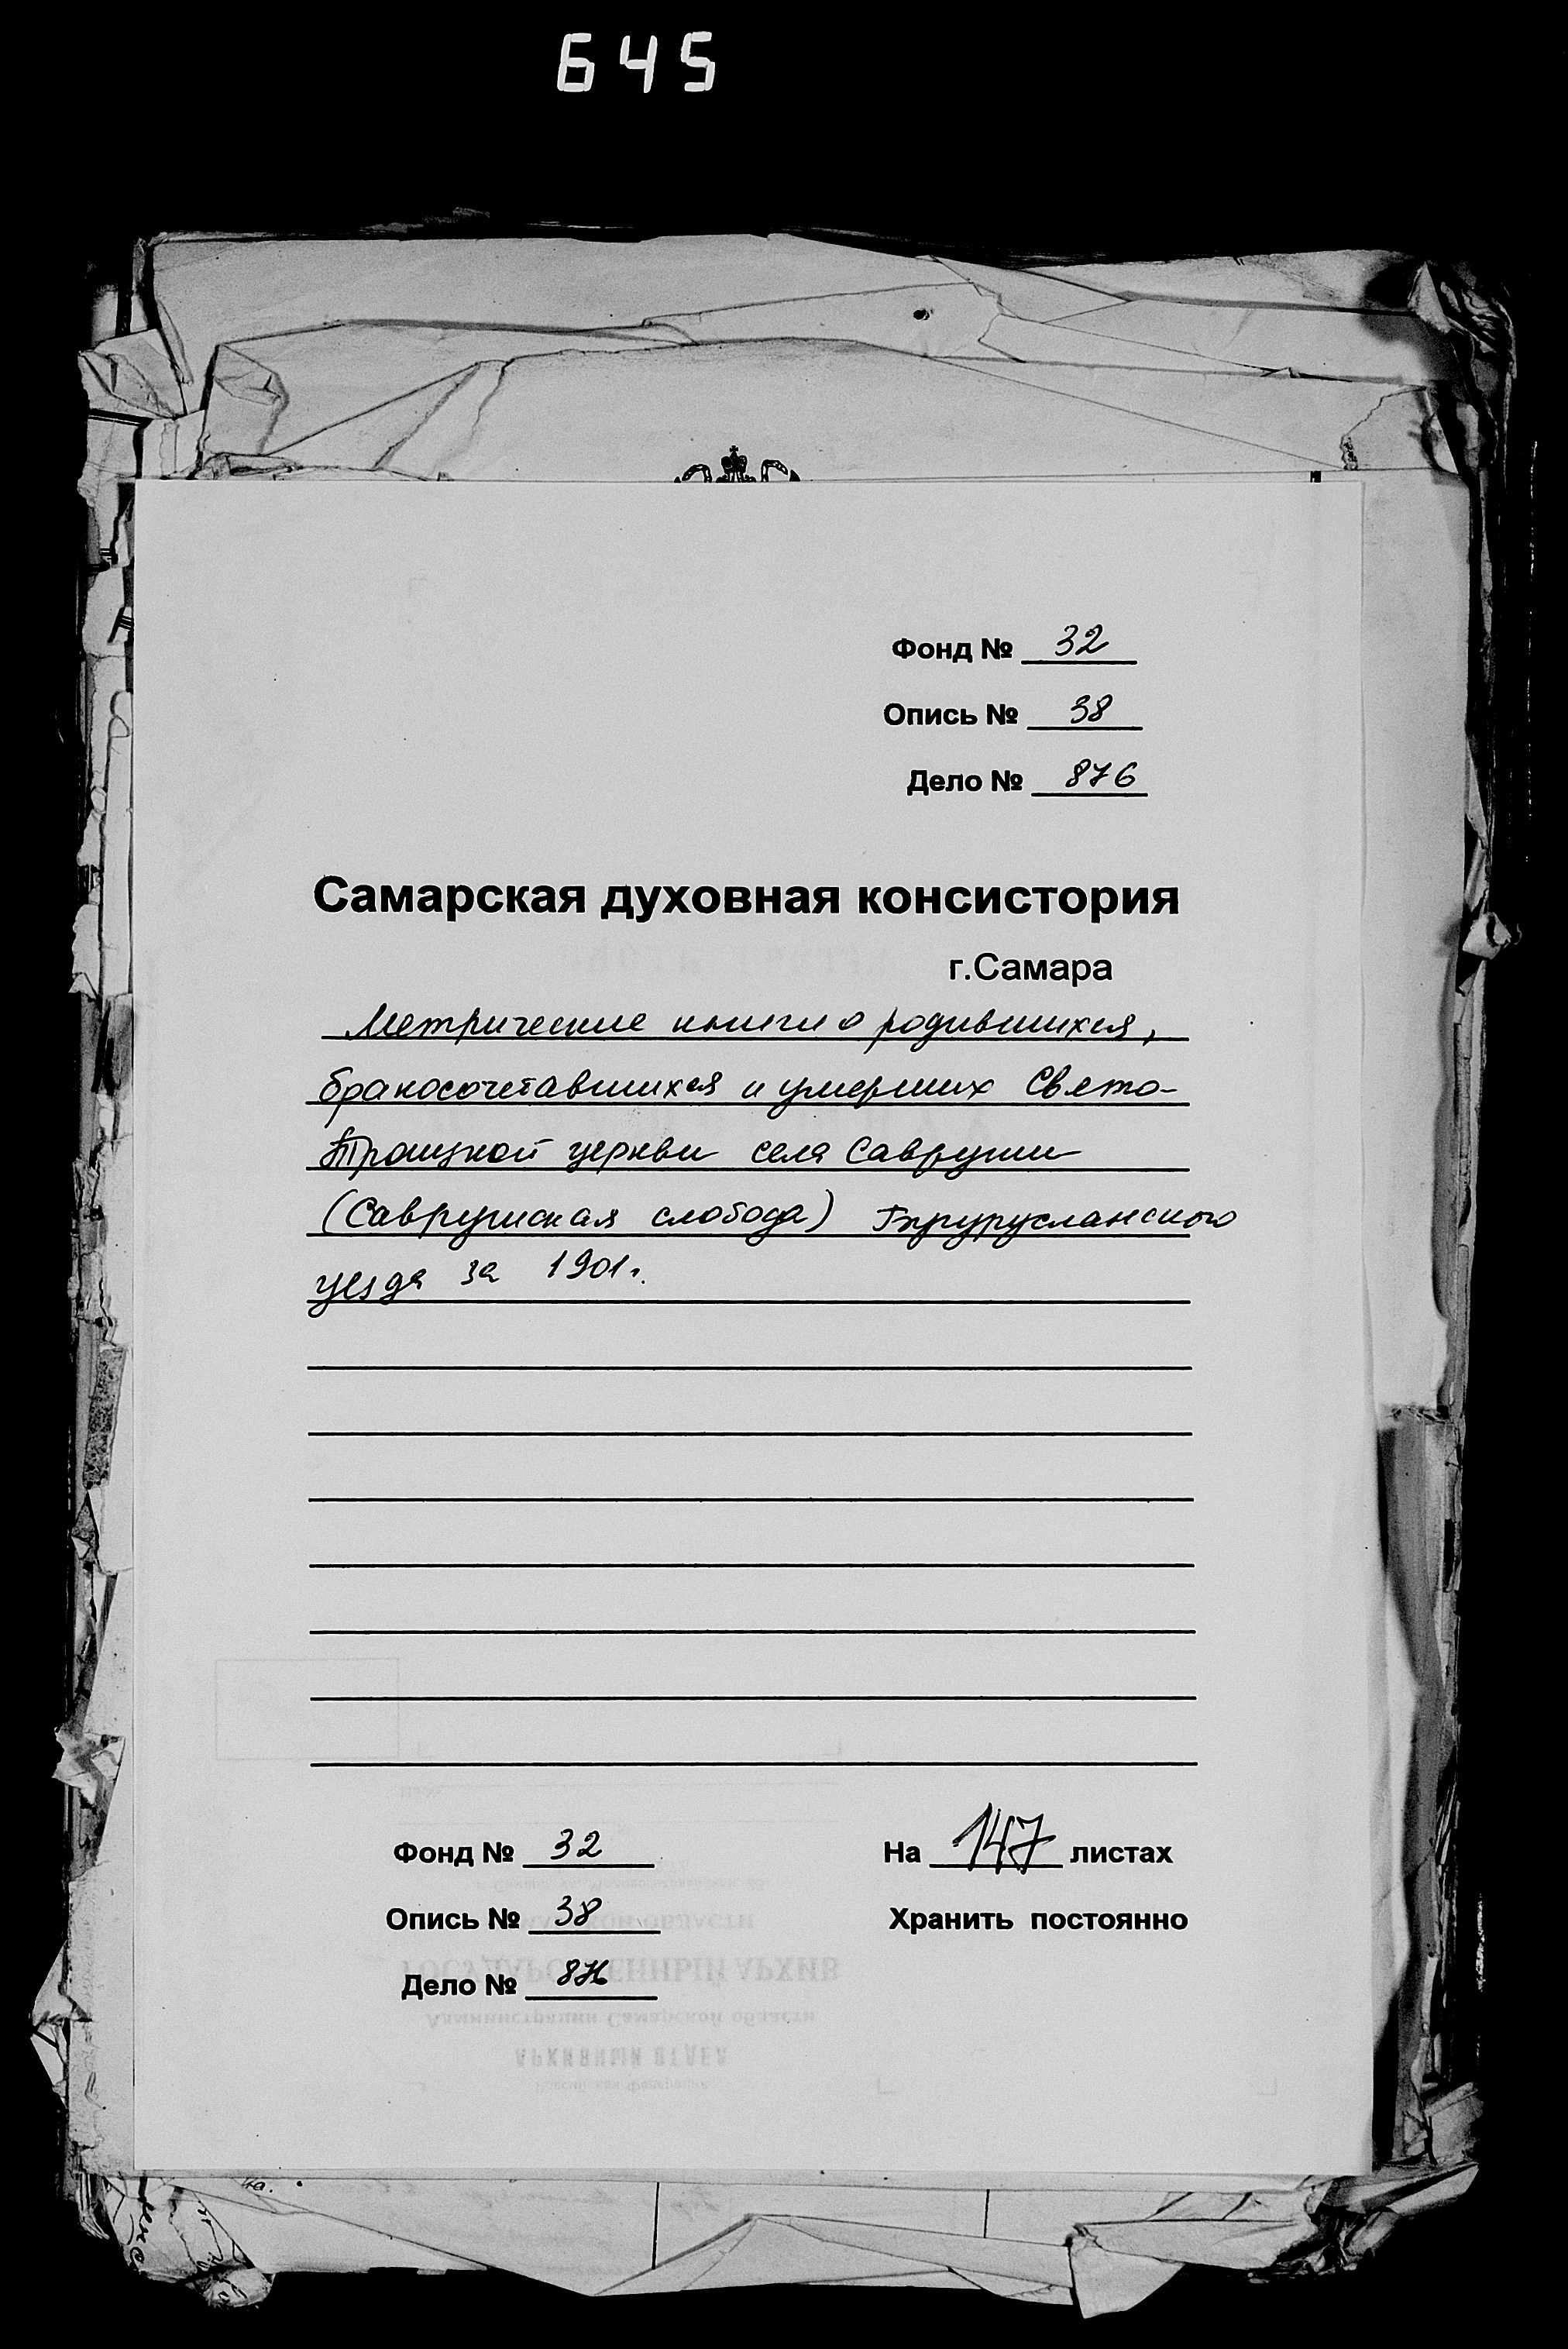 645
Фонд № 32
Опись № 38
Дело № 876
Самарская духовная консистория
г.Самара
Метрические книги о родившихся,
бракосочетавшихся и умерших Свято-
Троицкой церкви села Савруши
(Саврушская слобода) Бугурусланского
уезда за 1901г.
Фонд № 32
Опись № 38
Дело № 876
На 147 листах
Хранить постоянно